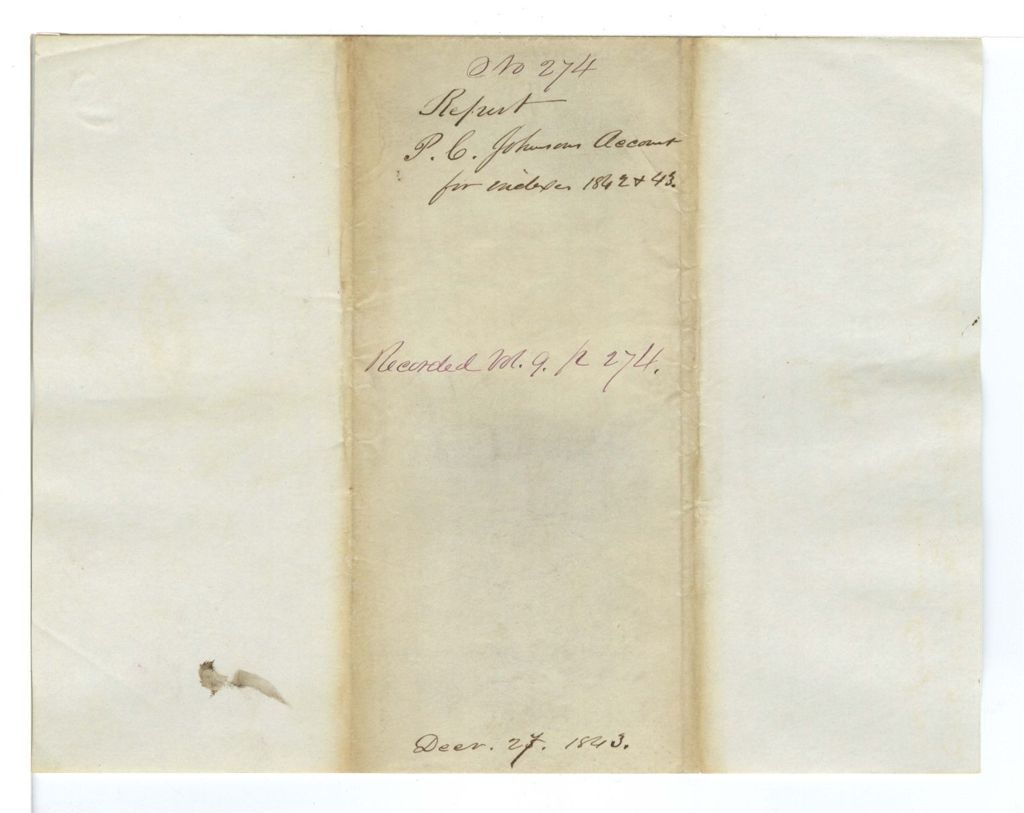 No 274
Report
P. C. Johnsons Account
for indexes 1842 & 43.
Recorded Vol. 9. p 274.
Decr. 27. 1843.